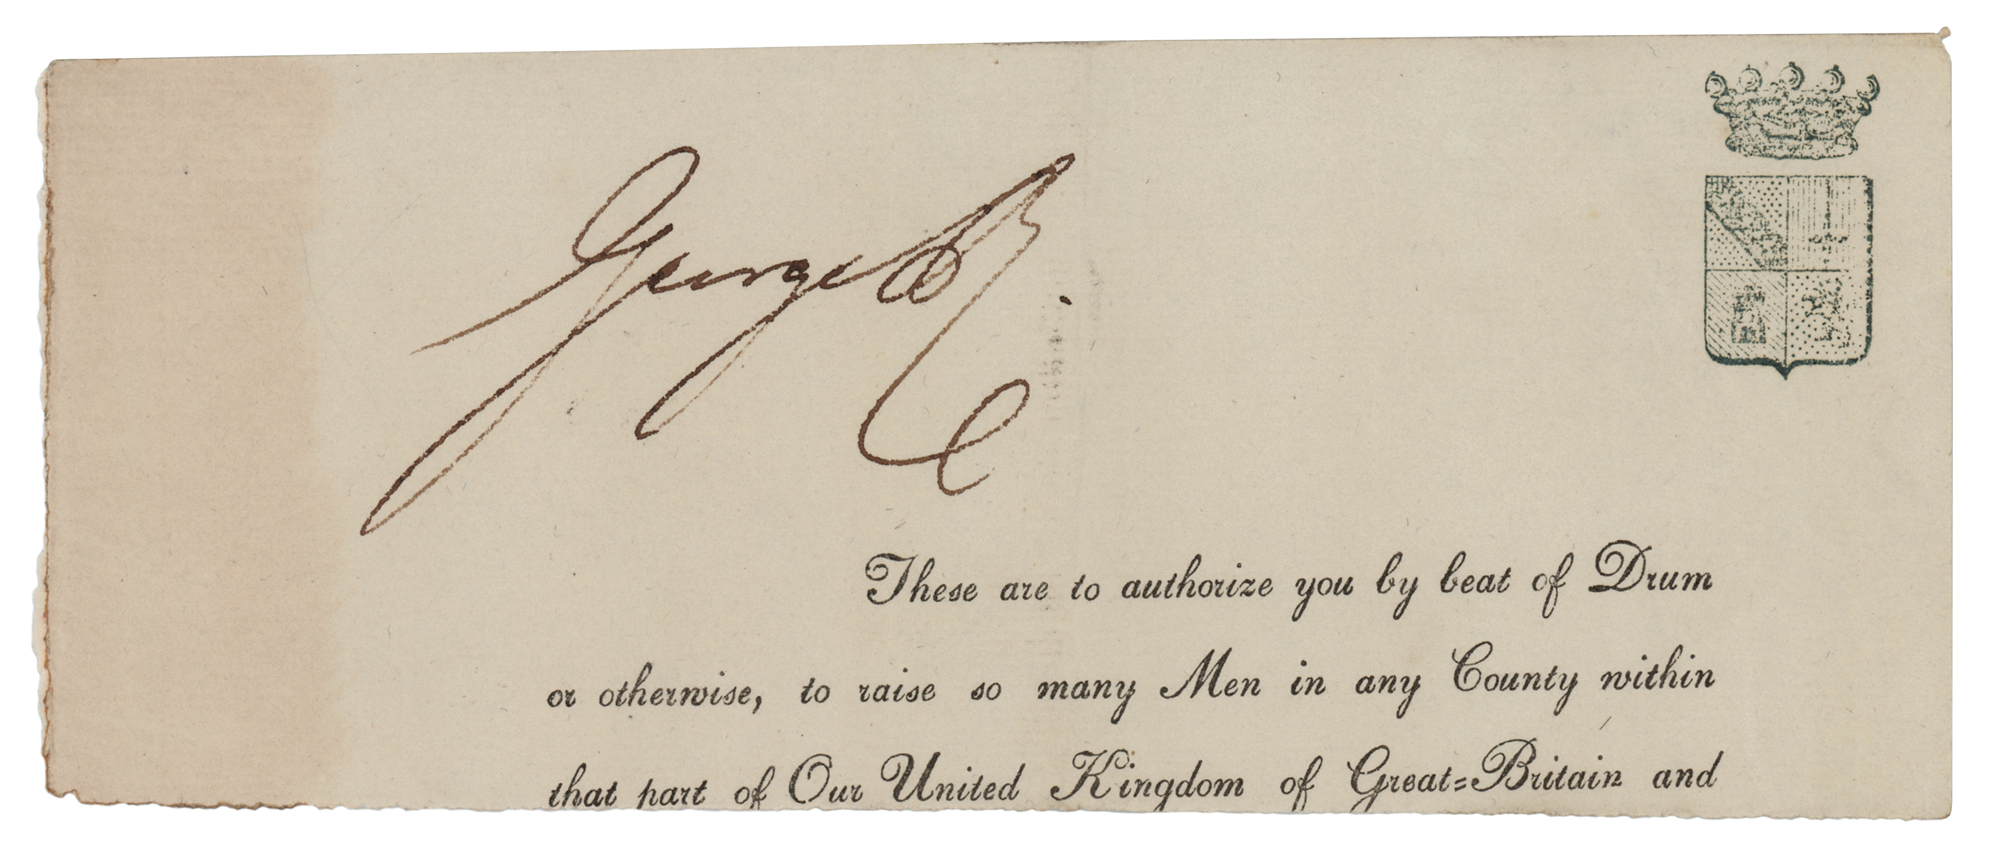 George R.
These are to authorize you by beat of Drum
or otherwise, to raise so many Men in any County within
that part of Our United Kingdom of Great=Britain and